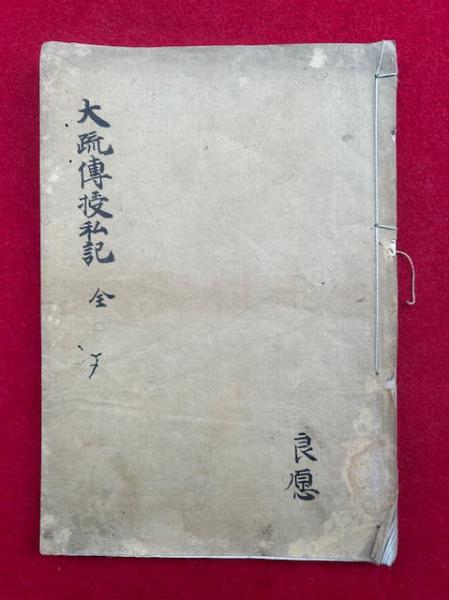 大疏傳授私記 全
良愿